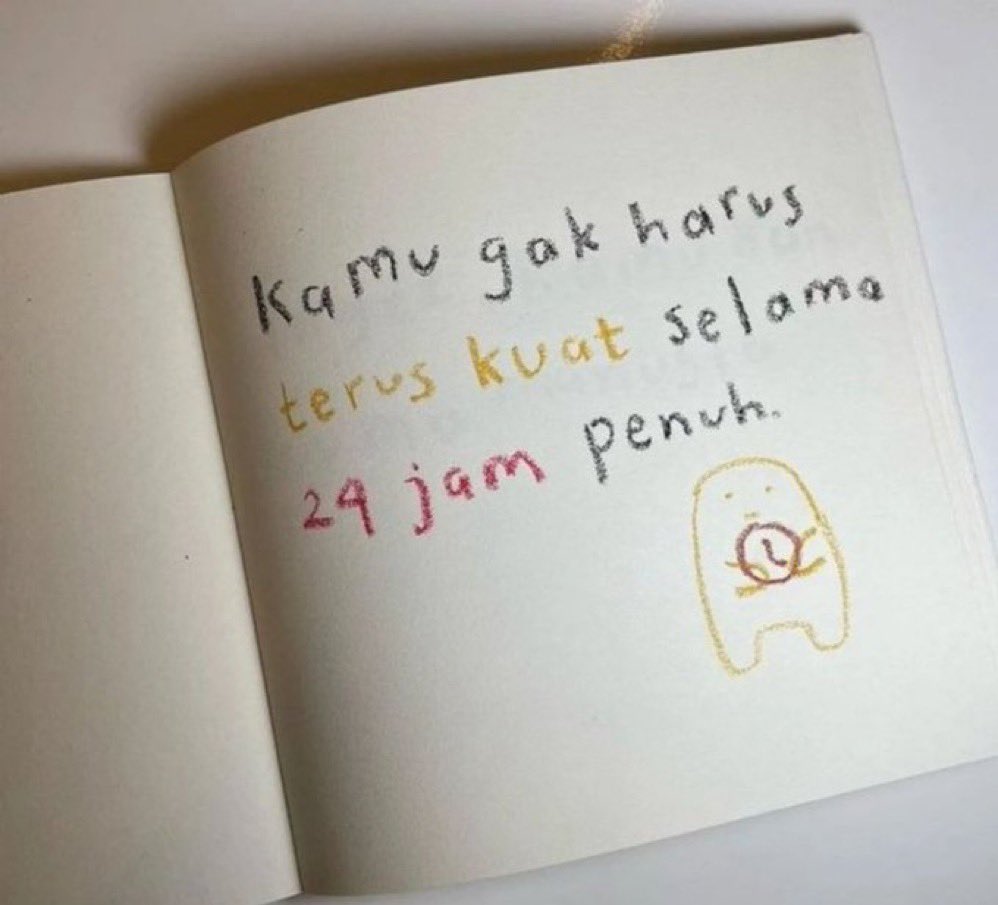 Kamu gak harus
terus kuat selama
24 jam penuh.